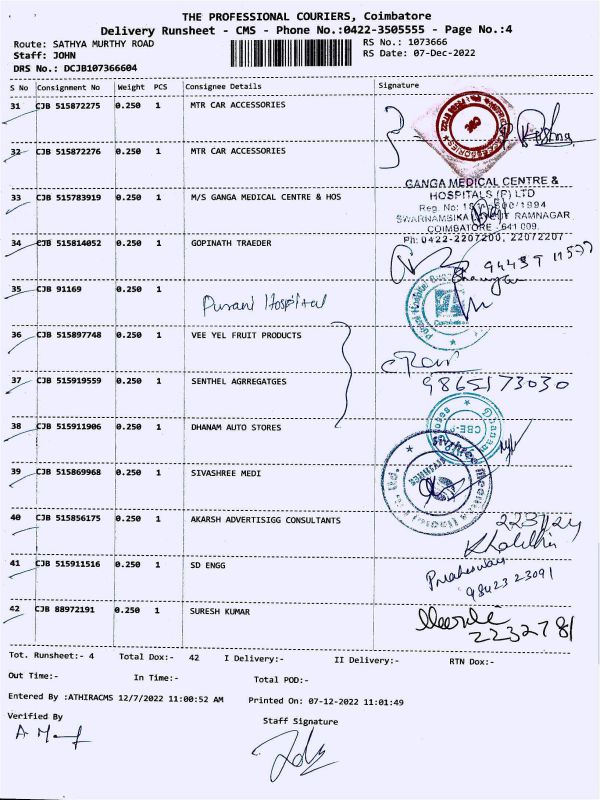 THE PROFESSIONAL COURIERS, Coimbatore
Delivery Runsheet - CMS - Phone No.:0422-3505555 - Page No.:4
Route: SATHYA MURTHY ROAD
RS No.: 1073666
Staff: JOHN
RS Date: 07-Dec-2022
DRS No.: DCJB107366604
S No Consignment No Weight PCS Consignee Details Signature
31 CJB 515872275 0.250 1 MTR CAR ACCESSORIES
32 CJB 515872276 0.250 1 MTR CAR ACCESSORIES
GANGA MEDICAL CENTRE &
HOSPITALS (P) LTD
33 CJB 515783919 0.250 1 M/S GANGA MEDICAL CENTRE & HOS
Reg. No:
SWARNAMBIKA RAMNAGAR
COIMBATORE - 641 009.
Ph: 0422-2207200, 22072207
34 CJB 515814052 0.250 1 GOPINATH TRAEDER
35 CJB 91169 0.250 1
Purani Hospital
36 CJB 515897748 0.250 1 VEE YEL FRUIT PRODUCTS
37 CJB 515919559 0.250 1 SENTHEL AGRREGATGES
9865173030
38 CJB 515911906 0.250 1 DHANAM AUTO STORES
39 CJB 515869968 0.250 1 SIVASHREE MEDI
40 CJB 515856175 0.250 1 AKARSH ADVERTISIGG CONSULTANTS
41 CJB 515911516 0.250 1 SD ENGG
98423 23091
42 CJB 88972191 0.250 1 SURESH KUMAR
2232781
Tot. Runsheet:- 4 Total Dox:- 42 I Delivery:- II Delivery:- RTN Dox:-
Out Time:- In Time:- Total POD:-
Entered By :ATHIRACMS 12/7/2022 11:00:52 AM Printed On: 07-12-2022 11:01:49
Verified By
Staff Signature